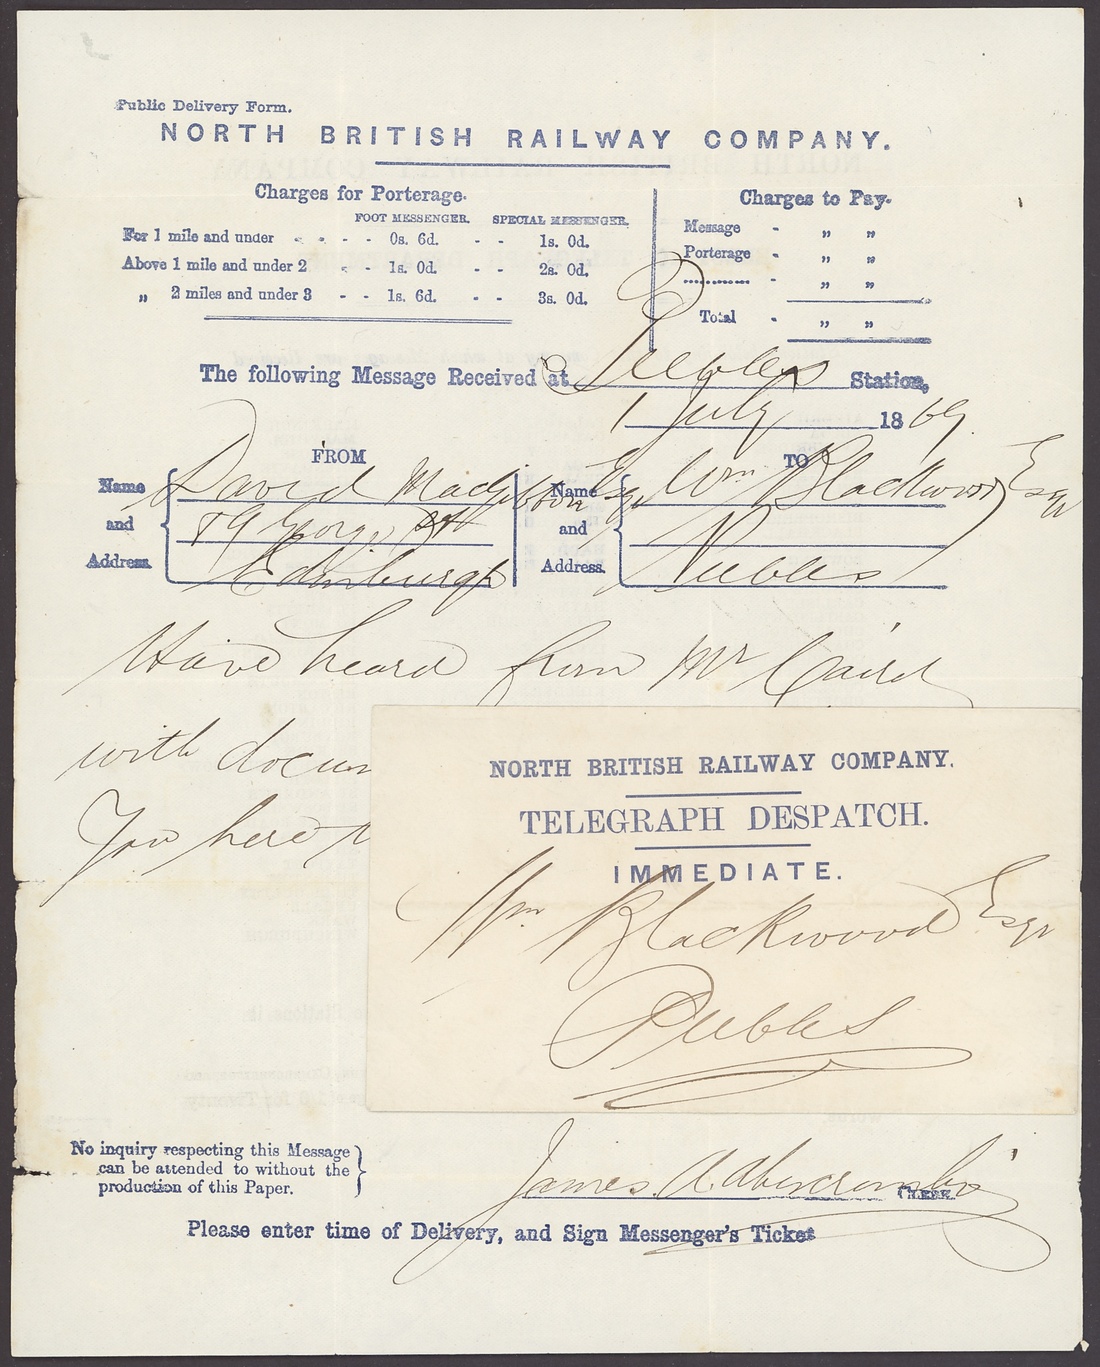 Public Delivery Form.
NORTH BRITISH RAILWAY COMPANY.
Charges for Porterage.
FOOT MESSENGER. SPECIAL MESSENGER.
For 1 mile and under - - - - 0s. 6d. - - 1s. 0d.
Above 1 mile and under 2 - - 1s. 0d. - - 2s. 0d.
„ 2 miles and under 3 - - 1s. 6d. - - 3s. 0d.
Charges to Pay.
Message - „ „
Porterage - „ „
............ - „ „
Total - „ „
The following Message Received at Peebles Station,
1 July 1869
FROM
Name and Address
David
89 George St
Edinburgh
TO
Name and Address.
Wm Blackwood Esqr
Peebles
Have heard from Mr Caird
with docum
You here
NORTH BRITISH RAILWAY COMPANY.
TELEGRAPH DESPATCH.
IMMEDIATE.
Wm Blackwood Esqr
Peebles
No inquiry respecting this Message
can be attended to without the
production of this Paper.
James Abercrombie CLERK
Please enter time of Delivery, and Sign Messenger's Ticket